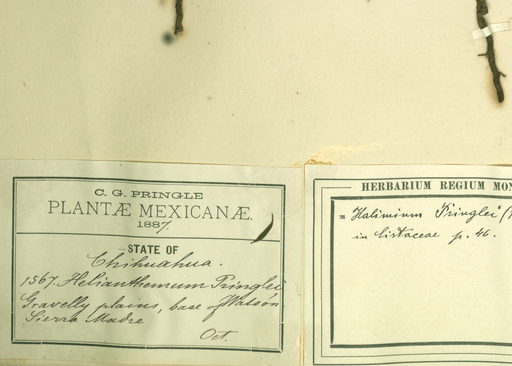 C. G. PRINGLE
PLANTÆ MEXICANÆ.
1887.
STATE OF
Chihuahua.
1567. Helianthemum Pringlei
Watson
Gravelly plains, base of
Sierra Madre
Oct.
HERBARIUM REGIUM MON
= Halimium Pringlei
in Cistaceae p. 46.